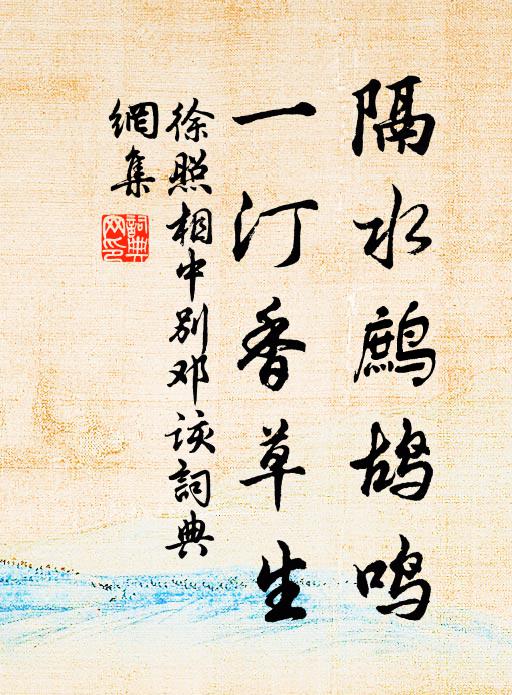 隔水鹧鸪鸣
一汀香草生
徐照相中别邓该詞典
網集
詞典
网印